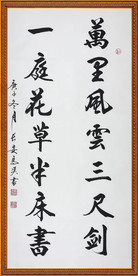 萬里風雲三尺劍
一庭花草半床書
庚子冬月